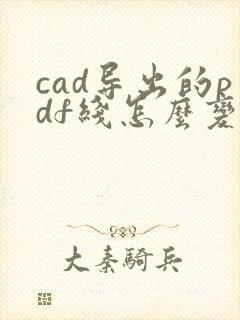 cad导出的p
df綫怎麽變
大秦騎兵